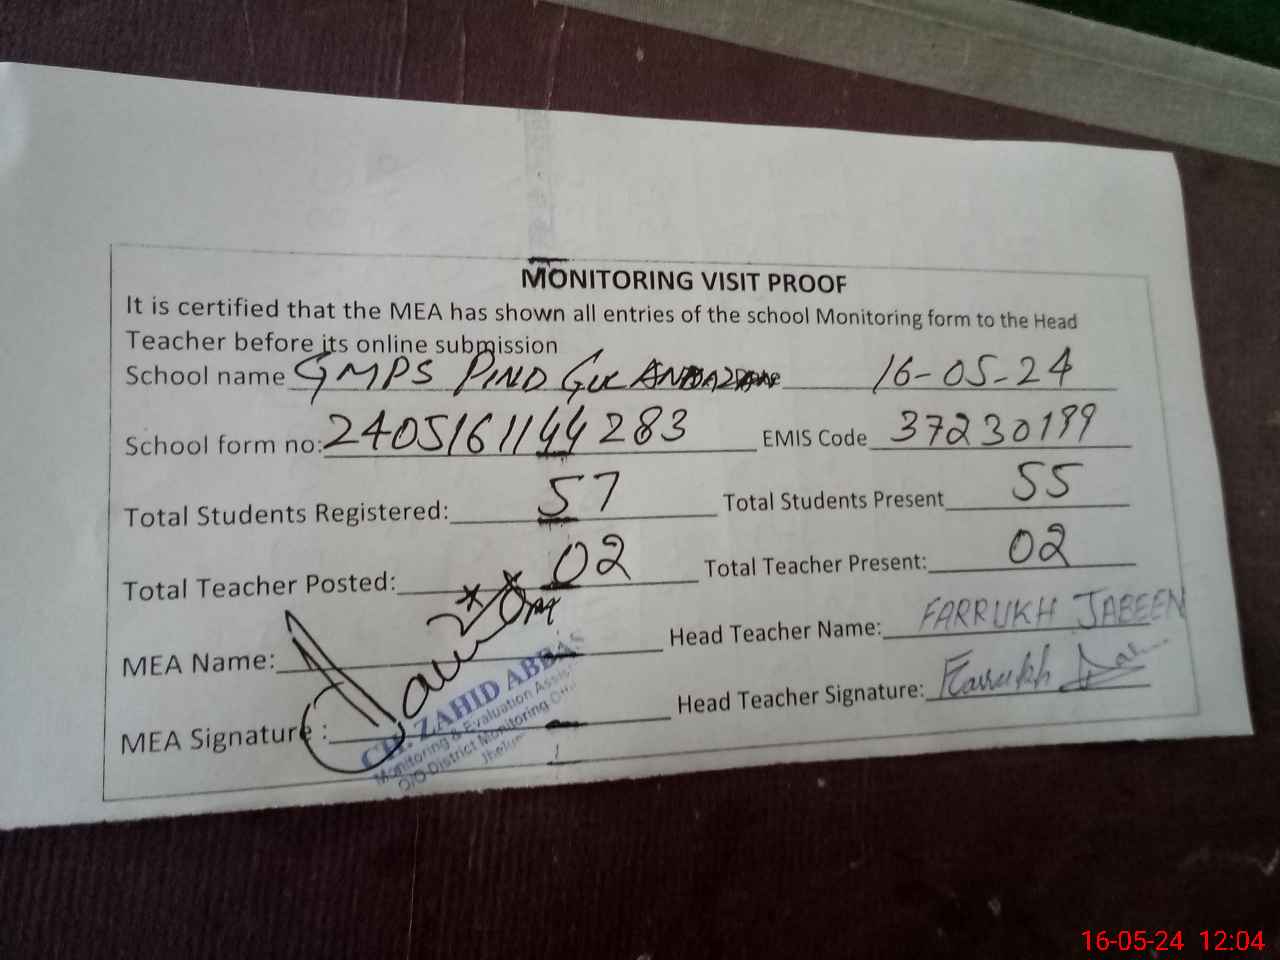 MONITORING VISIT PROOF
It is certified that the MEA has shown all entries of the school Monitoring form to the Head
Teacher before its online submission
School name GMPS PIND GUL 16-05-24
School form no: 2405161144283 EMIS Code 37230199
Total Students Registered: 57 Total Students Present 55
Total Teacher Posted: 02 Total Teacher Present: 02
MEA Name: Head Teacher Name: FARRUKH JABEEN
MEA Signature : Head Teacher Signature: Farrukh
CH. ZAHID ABBAS
Monitoring & Evaluation Assis
O/O District Monitoring
Jhelum
16-05-24 12:04